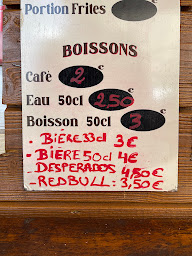 Portion Frites €
BOISSONS
Café 2 €
Eau 50cl 2,50 €
Boisson 50cl 3 €
- BIÈRE 33cl 3€
- BIÈRE 50cl 4€
- DESPERADOS 4,50 €
- REDBULL : 3,50€